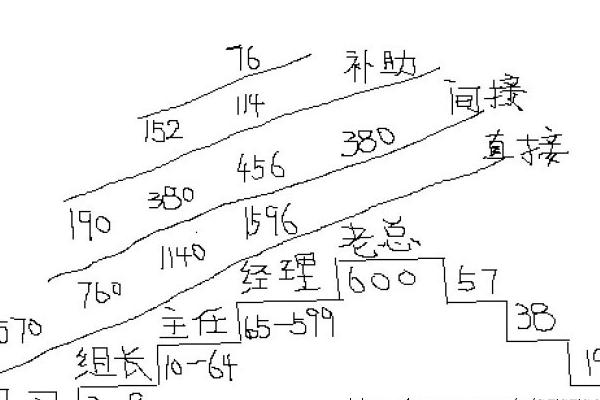 76
补助
152 114
间接
190 380 456 380
直接
760 1140 1596
570
老总
经理 600 57
主任 65-599 38
组长 10-64